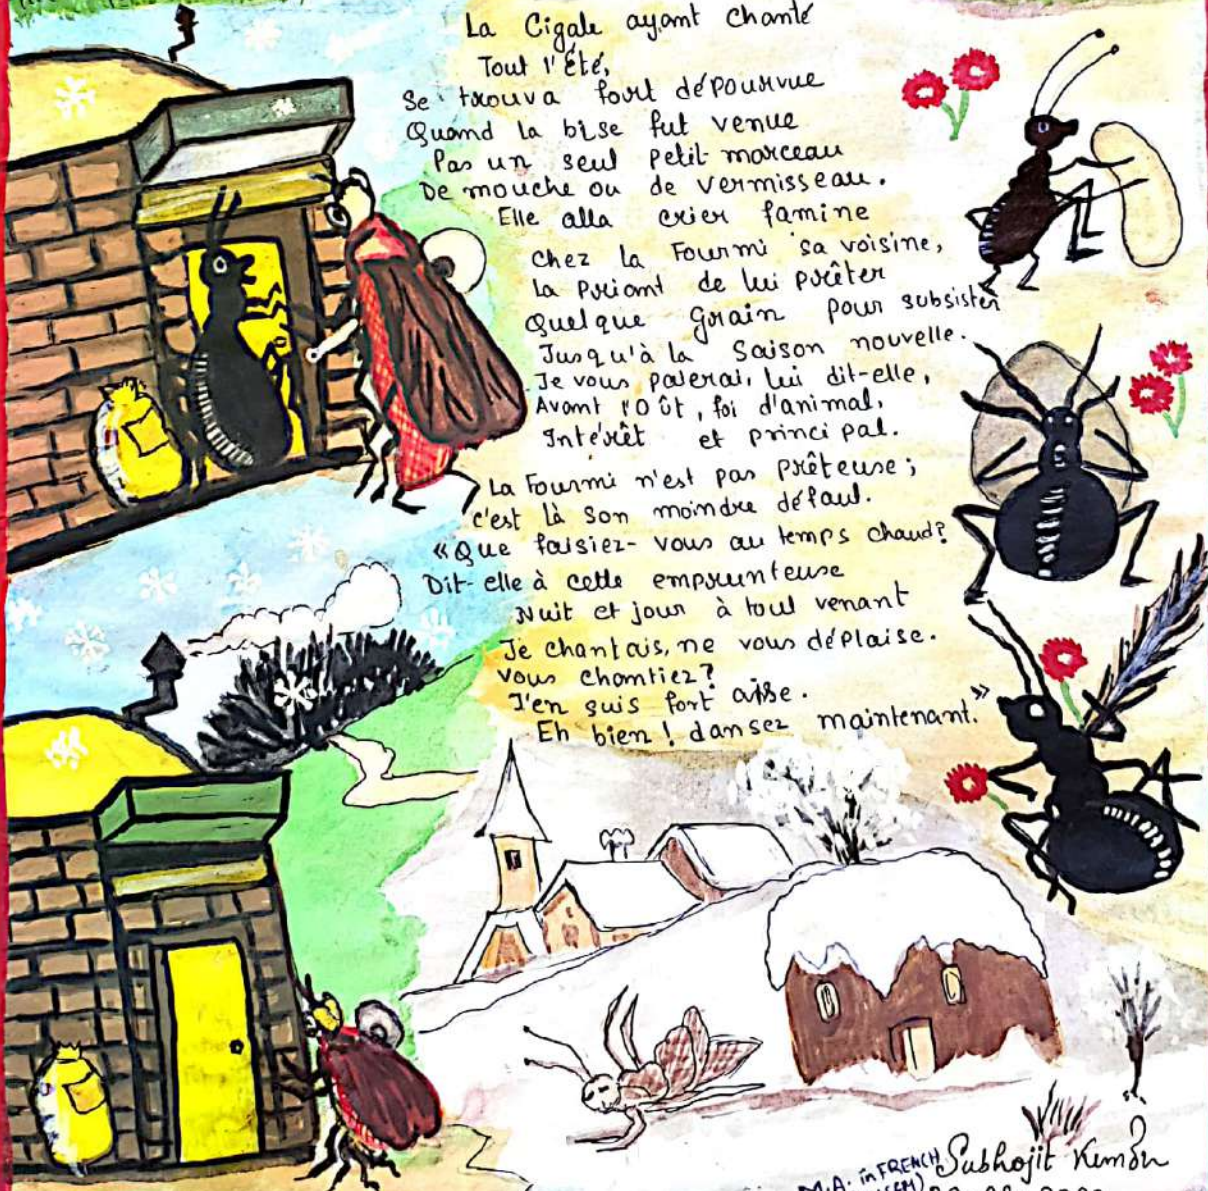 La Cigale ayant chanté
Tout l'Été,
Se trouva fort dépourvue
Quand la bise fut venue
Pas un seul petit morceau
De mouche ou de vermisseau.
Elle alla crier famine
chez la Fourmi sa voisine,
La Priant de lui prêter
Quelque grain pour subsister
Jusqu'à la Saison nouvelle.
Je vous paierai, lui dit-elle,
Avant l'Oût, foi d'animal,
Intérêt et principal.
La Fourmi n'est pas Prêteuse;
c'est là son moindre défaut.
«Que faisiez-vous au temps chaud?
Dit-elle à cette emprunteuse
Nuit et jour à tout venant
Je chantais, ne vous déplaise.
Vous chantiez?
J'en suis fort aise.
Eh bien! dansez maintenant.»
Subhojit
M.A. in FRENCH